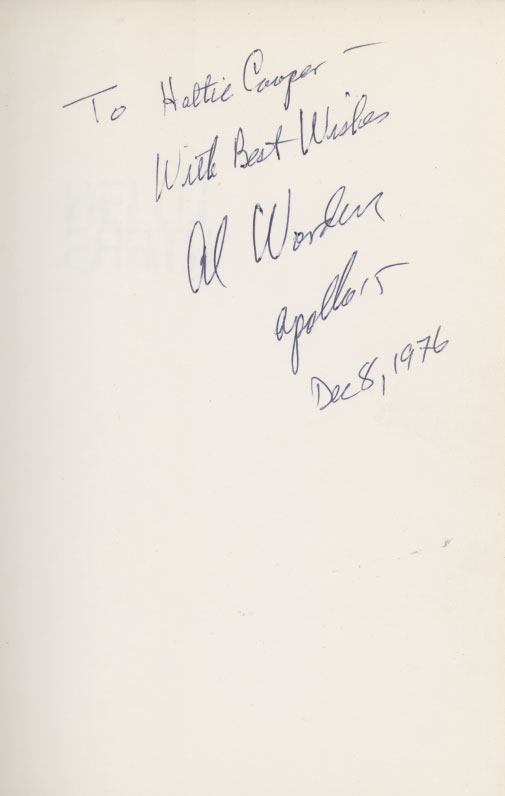 To Hattie Cooper —
With Best Wishes
Al Worden
Apollo 15
Dec 8, 1976